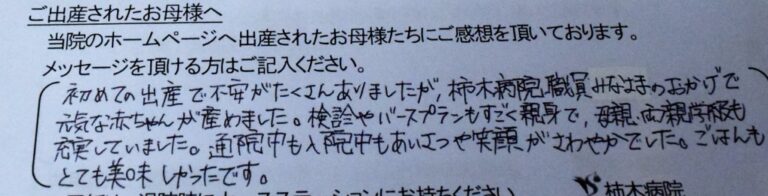 ご出産されたお母様へ
当院のホームページへ出産されたお母様たちにご感想を頂いております。
メッセージを頂ける方はご記入ください。
初めての出産で不安がたくさんありましたが、柿木病院職員みなさまのおかげで
元気な赤ちゃんが産めました。検診やバースプランもすごく親身で、母親・両親学級も
充実していました。通院中も入院中もあいさつや笑顔がさわやかでした。ごはんも
とても美味しかったです。
にお持ちください
柿木病院